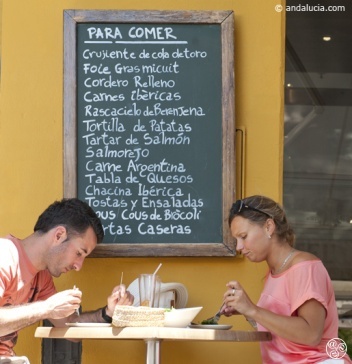 © andalucia.com
PARA COMER
Crujiente de cola de toro
Foie Gras micuit
Cordero Relleno
Carnes ibéricas
Rascacielo de Berenjena
Tortilla de Patatas
Tartar de Salmón
Salmorejo
Carne Argentina
Tabla de Quesos
Chacina Ibérica
Tostas y Ensaladas
Cous de Brócoli
Caseras